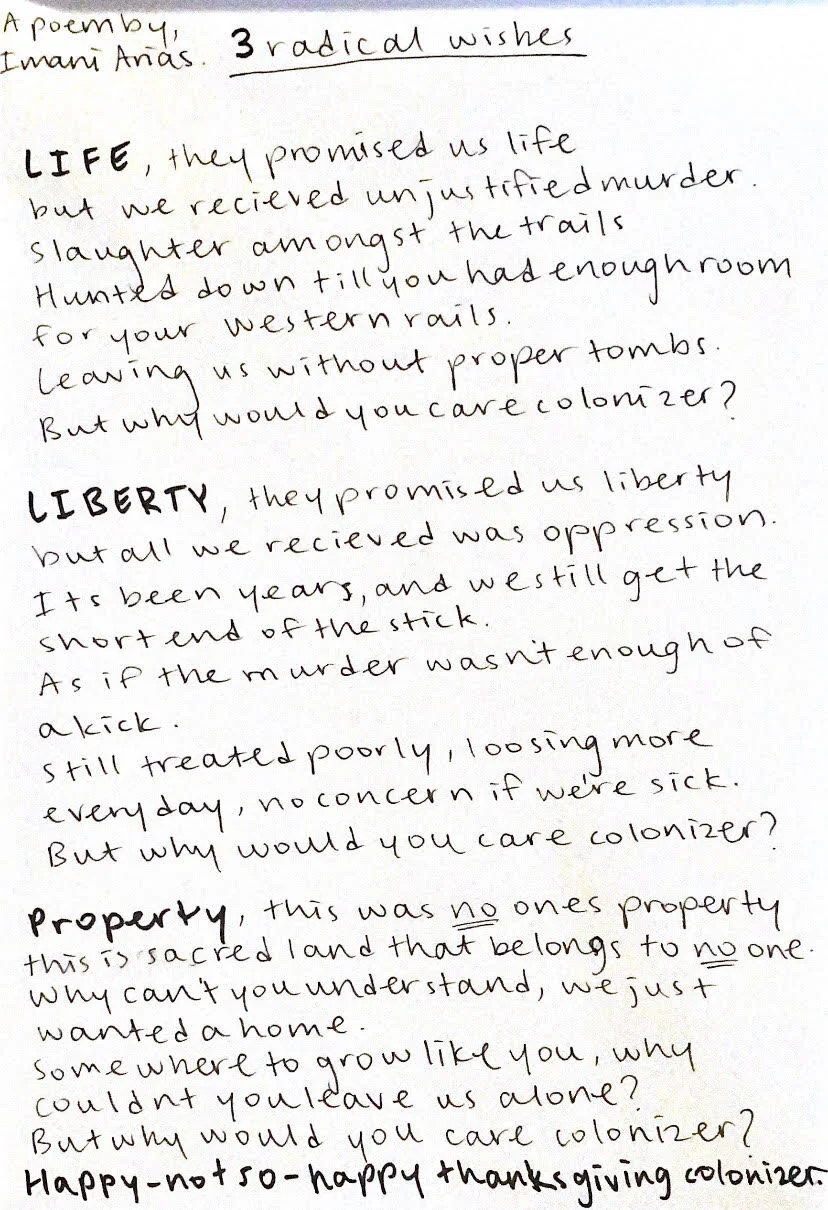 A poem by,
Imani Arias.
3 radical wishes
LIFE, they promised us life
but we recieved unjustified murder.
slaughter amongst the trails
Hunted down till you had enough room
for your western rails.
Leaving us without proper tombs.
But why would you care colonizer?
LIBERTY, they promised us liberty
but all we recieved was oppression.
Its been years, and we still get the
short end of the stick.
As if the murder wasn't enough of
a kick.
still treated poorly, loosing more
everyday, no concern if we're sick.
But why would you care colonizer?
Property, this was no ones property
this is sacred land that belongs to no one.
Why can't you understand, we just
wanted a home.
Somewhere to grow like you, why
couldnt you leave us alone?
But why would you care colonizer?
Happy-not so-happy thanksgiving colonizer.